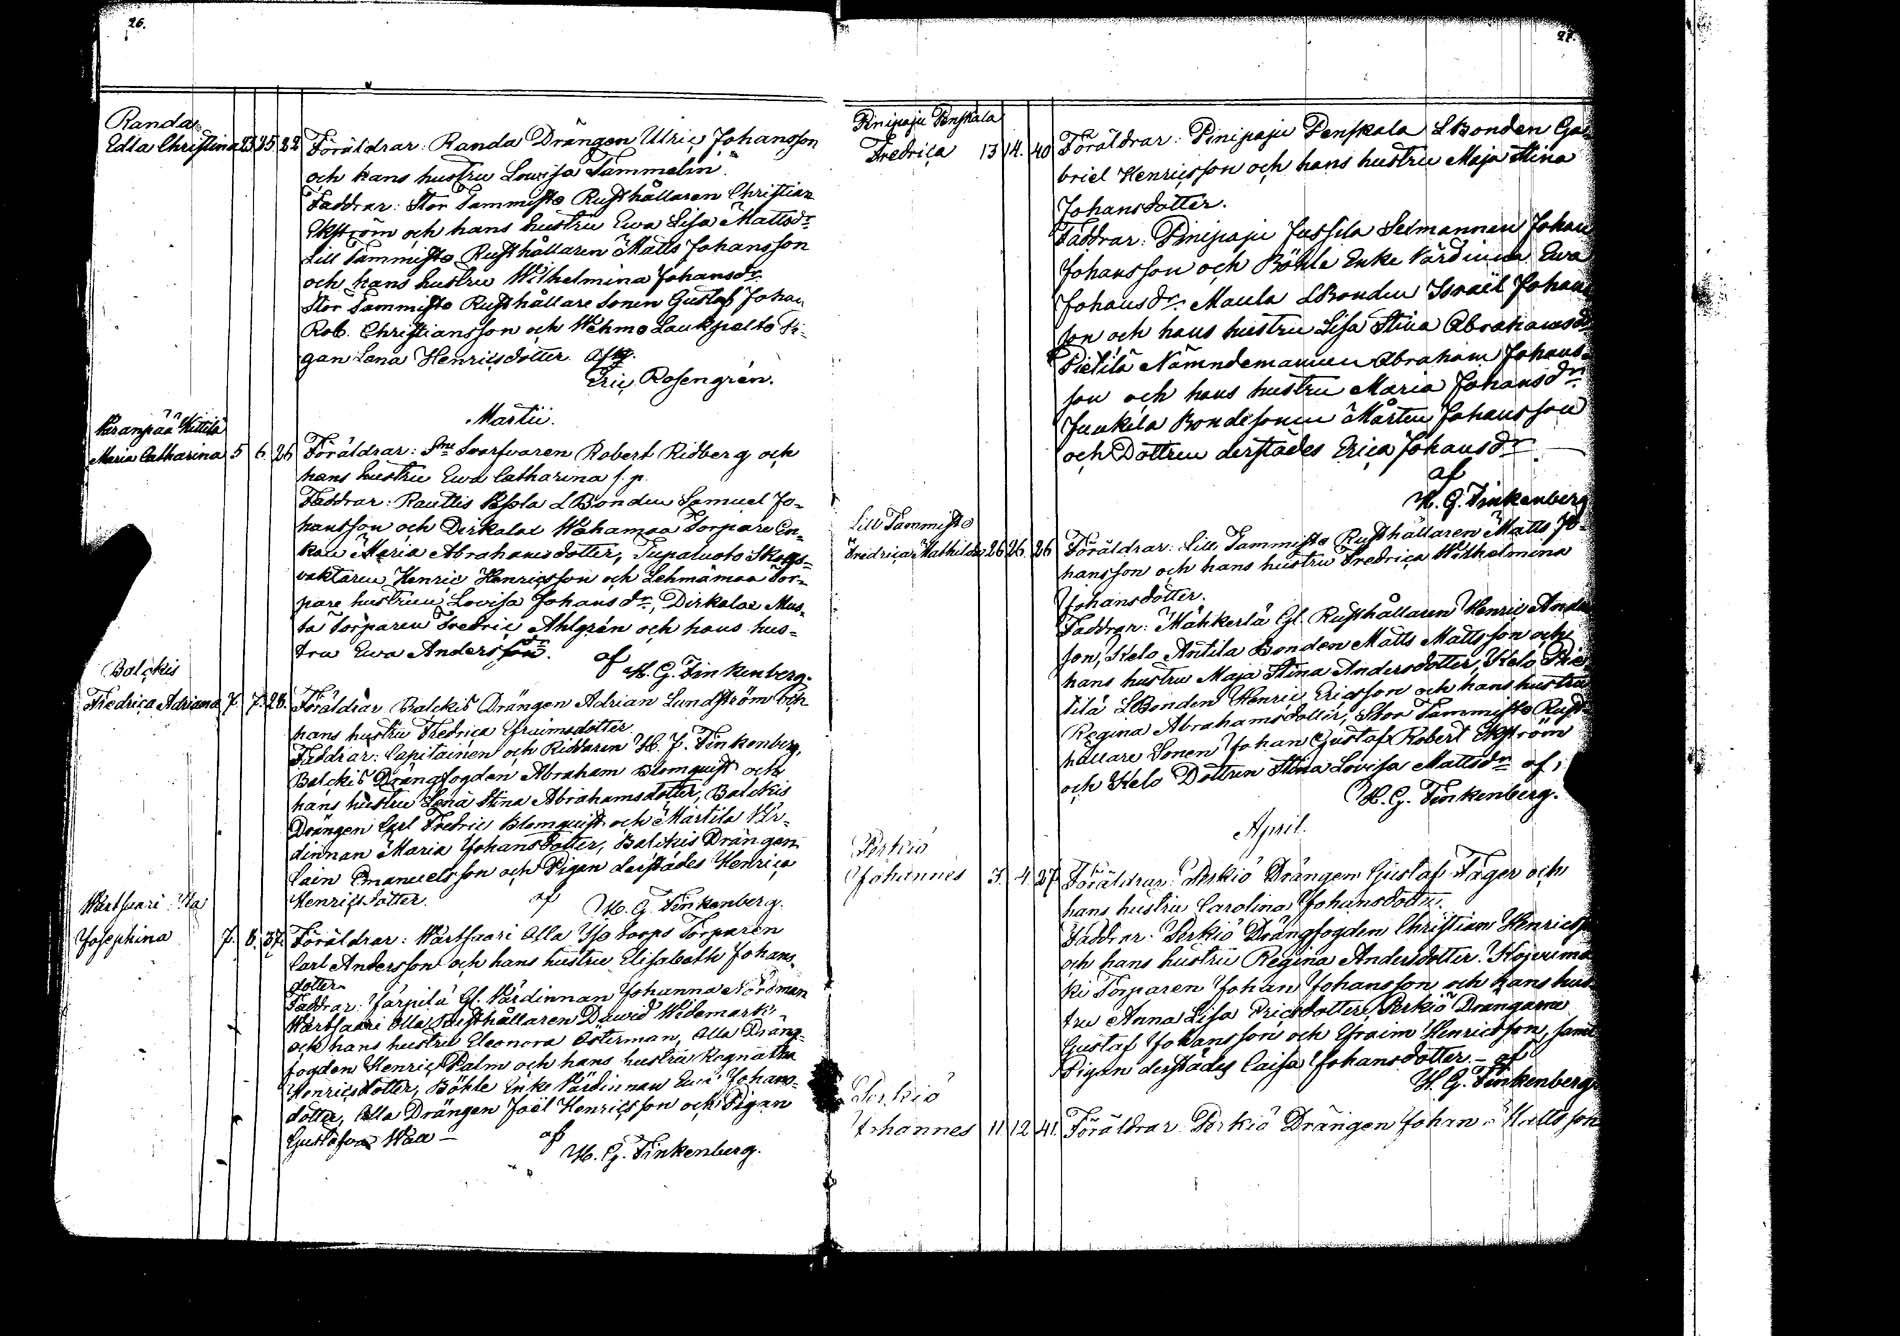 26.
Randa
Edla Christina 23 25 22 Föräldrar: Randa Drängen Ulric Johansson
och hans hustru Lovisa Tammelin.
Faddrar: Stor Tammisto Rusthållaren Christian
Ekström och hans hustru Ewa Lisa Mattsdr
Lill Tammisto Rusthållaren Matts Johansson
och hans hustru Wilhelmina Johansdr
Stor Tammisto Rusthållare Sonen Gustaf Johan
Rob. Christiansson och Wehmo Laukpelto Pi-
gan Lena Henricsdotter af
Eric Rosengrén.
Martii.
Kittilä
Maria Catharina 5 6 26 Föräldrar: Sne Svarfvaren Robert Ridberg och
hans hustru Ewa Catharina f. p.
Faddrar: Rautlis LBonden Samuel Jo-
hansson och Dirkalax Wahamaa Torpare En-
kan Maria Abrahamsdotter, Tupaluoto Skogs-
vaktaren Henric Henricsson och Lehmämaa Tor-
pare hustrun Lovisa Johansdr, Dirkalax Mus-
ta Torparen Fredric Ahlgrén och hans hus-
tru Ewa Andersdr. af
H. G. Finkenberg.
Balckis
Fredrica Adriana 7 7. 28. Föräldrar Balckis Drängen Adrian Lundström och
hans hustru Fredrica Efraimsdotter
Faddrar: Capitainen och Riddaren H. J. Finkenberg,
Balckis Drängfogden Abraham Blomquist och
hans hustru Lena Stina Abrahamsdotter, Balckis
Drängen Carl Fredric Blomquist och Märtilä Vär-
dinnan Maria Johansdotter, Balckis Drängen
Cain Emanuelsson och Pigan derstädes Henrica
Henricsdotter. af H. G. Finkenberg.
Wartsaari
Josephina 7. 8. 37. Föräldrar: Wartsaari Alla Torparen
Carl Andersson och hans hustru Elisabeth Johans-
dotter
Faddrar: Järpilä Gl. Värdinnan Johanna Nordman
Wartsaari Alla Rusthållaren Dawid Widemark
och hans hustru Eleonora Österman, Alla Dräng-
fogden Henric Palm och hans hustru Regnatha
Henricsdotter, Böhle Enke Värdinnan Ewa Johans-
dotter, Alla Drängen Joël Henricsson och Pigan
Gustafva Waa — af
H. G. Finkenberg.
27.
Pinipaju Penskala
Fredrica 13 14. 40 Föräldrar: Pinipaju Penskala LBonden Ga-
briel Henricsson och hans hustru Maja Stina
Johansdotter.
Faddrar: Pinipaju Jussila Sexmannen Johan
Johansson och Böhle Enke Värdinnan Ewa
Johansdr. Maula LBonden Israël Johans-
son och hans hustru Lisa Stina Abrahamsdr
Pietilä Nämndemannen Abraham Johans-
son och hans hustru Maria Johansdr
Junkila Bondesonen Mårten Johansson
och Dottren derstädes Erica Johansdr.
af
H. G. Finkenberg
Lill Tammisto
Fredrica Mathilda 26 26. 26 Föräldrar: Lill Tammisto Rusthållaren Matts Jo-
hansson och hans hustru Fredrica Wilhelmina
Johansdotter.
Faddrar: Mähkerlä Gl. Rusthållaren Henric Anders-
son, Kelo Antila Bonden Matts Mattsson och
hans hustru Maja Stina Andersdotter, Kelo Pie-
tilä LBonden Henric Ericsson och hans hustru
Regina Abrahamsdotter, Stor Tammisto Rust-
hållare Sonen Johan Gustaf Robert Ekström
och Kelo Dottren Stina Lovisa Mattsdr af,
H. G. Finkenberg.
April.
Perkiö
Johannes 3. 4. 27 Föräldrar: Perkiö Drängen Gustaf Fager och
hans hustru Carolina Johansdotter.
Faddrar: Perkiö Drängfogden Christian Henricsson
och hans hustru Regina Andersdotter.
ki Torparen Johan Johansson och hans hus-
tru Anna Lisa Ericsdotter, Perkiö Drängarne
Gustaf Johansson och Efraim Henricsson, samt
Pigan derstädes Caisa Johansdotter. — af
H. G. Finkenberg
Perkiö
Johannes 11 12 41. Föräldrar: Perkiö Drängen Johan Mattsson